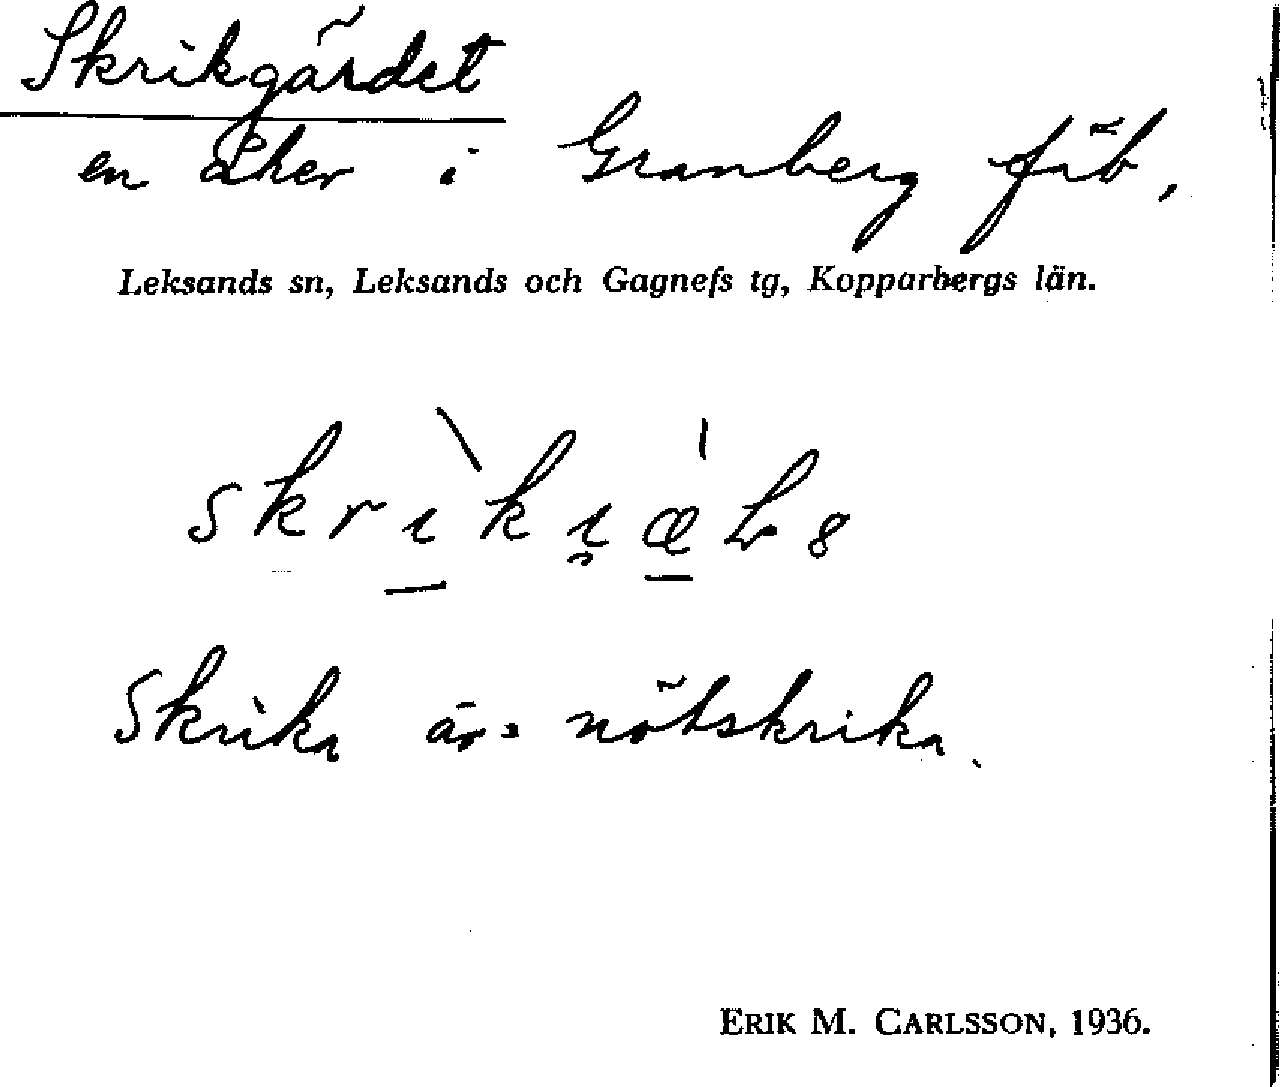 Skrikgärdet
en åker i Granberg fäb,
Leksands sn, Leksands och Gagnefs tg, Kopparbergs län.
Skrika är = nötskrika.
ERIK M. CARLSSON, 1936.